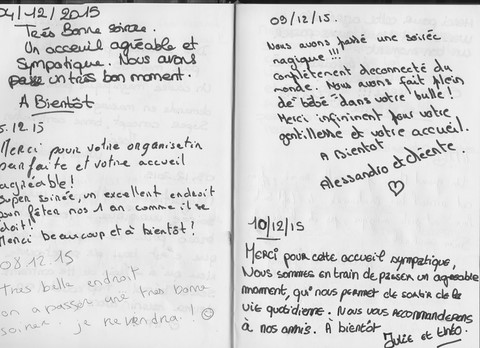 04/12/2015
Très Bonne soirée.
Un acceuil agréable et
sympatique. Nous avons
passe un très bon moment.
A Bientôt
5.12.15
Merci pour votre organisation
parfaite et votre accueil
agréable!
super soirée, un excellent endroit
pour fêter nos 1 ans comme il se
doit!
Merci beaucoup et à bientôt!
08.12.15
très belle endroit
on a passer une très bonne
soirée. je reviendrai!
09/12/15.
Nous avons passé une soirée
magique!!!
complètement deconnecté du
monde. Nous avons fait plein
de "bébé" dans votre bulle!
Merci infiniment pour votre
gentillesse et votre accueil.
A Bientot
Alessandro et
10/12/15
Merci pour cette accueil sympatique,
Nous sommes en train de passer un agreable
moment, qui nous permet de sortir de la
vie quotidienne. Nous vous recommanderons
à nos amis. À bientôt
Julie et théo.